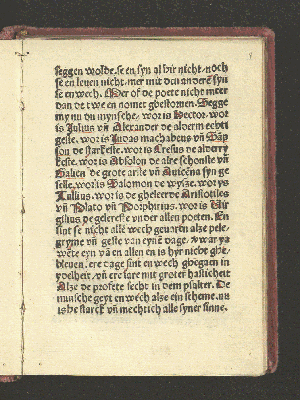 seggen wolde. se en syn al hir nicht. noch
se en leuen nicht. mer mit den anderē syn
se en wech. Mer of de poete nicht meer
dan de twe en nomet ghekomen. Segge
my nu du mynsche. wor is Hector. wor
is Julius vn̄ Alexander de alderm echti
geste. wor is Judas machabeus vn̄ Sāp
son de starkeste. wor is Cresus de alderry
keste. wor is Absolon de alre schonste vn̄
Galien de grote arste vn̄ Auicēna syn ge
selle. wor is Salomon de wyse. wor ys
Tullius. wor is de gheleerde Aristotiles
vn̄ Plato vn̄ Porphirius. wor is Vir
gilius de gelereste vnder allen poeten. En
sint se nicht alle wech gevarn alze pele
gryme vn̄ geste van eynē dage. vwar ya
wēte eyn vā en allen en is hyr nicht ghe
bleuen. ere dage sint en wech ghegaen in
ydelheit. vn̄ ere iare mit groter hasticheit
Alze de profete secht in dem psalter. De
minsche geyt en wech alze ein scheme. nu
is he starck vn̄ mechtich alle syner sinne.